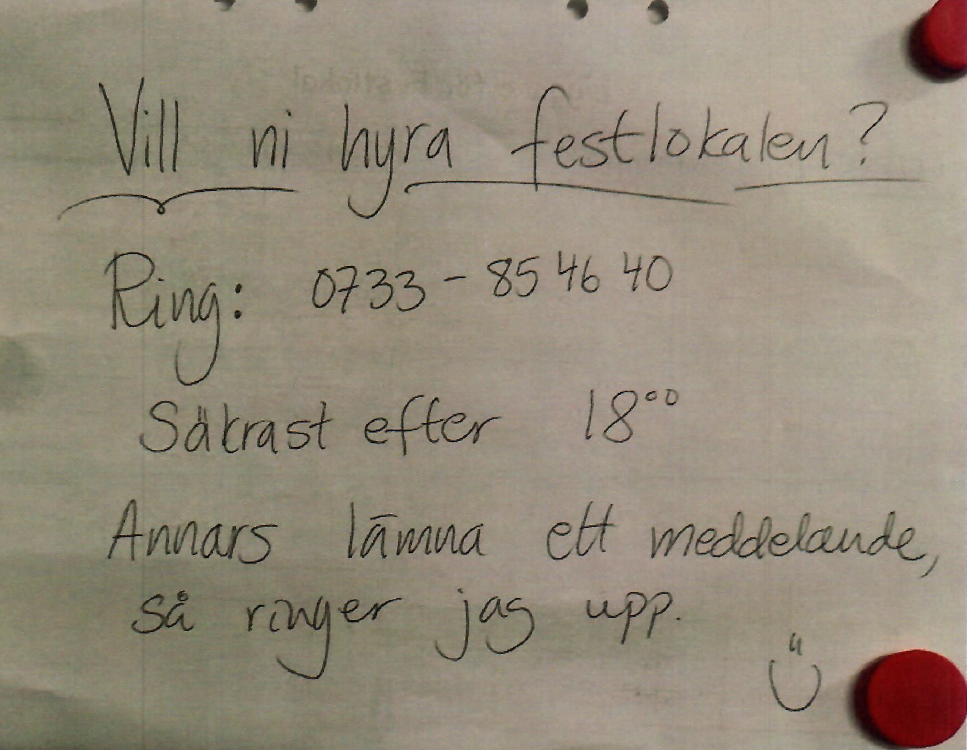 Vill ni hyra festlokalen?
Ring: 0733-85 46 40
Säkrast efter 18⁰⁰
Annars lämna ett meddelande,
så ringer jag upp.